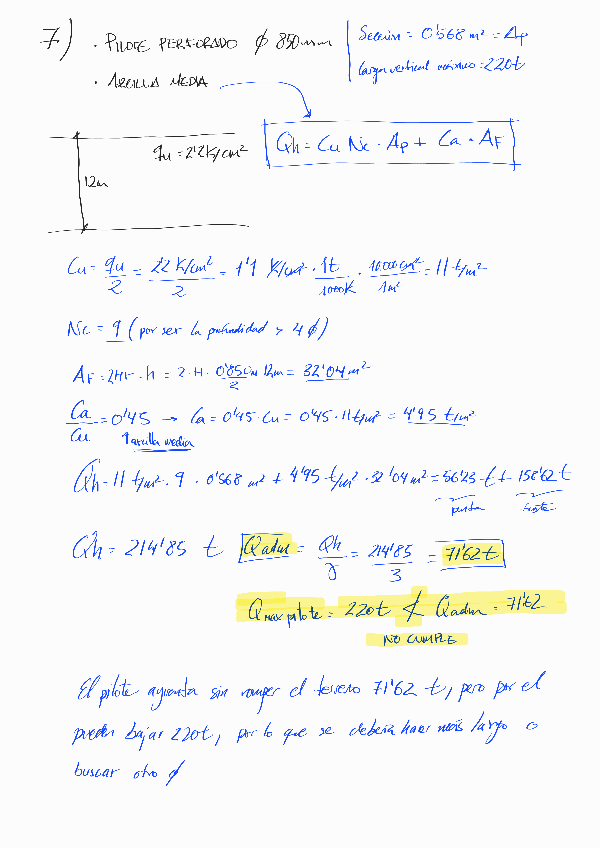 7)
· PILOTE PERFORADO ϕ 850 mm
Sección = 0'568 m² = Ap
Carga vertical máxima: 220t
· ARCILLA MEDIA
qu = 2'2 K/cm²
Qh = Cu Nc · Ap + Ca · AF
12m
Cu = qu/2 = 2'2 K/cm²/2 = 1'1 K/cm² · 1t/1000K · 10.000cm²/1m² = 11 t/m²
Nc = 9 (por ser la profundidad > 4 ϕ)
AF = 2πr · h = 2 · π · 0'85/2 m 12m = 32'04 m²
Ca/Cu = 0'45 → Ca = 0'45 · Cu = 0'45 · 11 t/m² = 4'95 t/m²
↑ arcilla media
Qh = 11 t/m² · 9 · 0'568 m² + 4'95 t/m² · 32'04 m² = 56'23 t + 158'62 t
punta fuste
Qh = 214'85 t Qadm = Qh/γ = 214'85/3 = 71'62 t
Qmax pilote = 220t ≮ Qadm = 71'62
NO CUMPLE
El pilote aguanta sin romper el terreno 71'62 t, pero por el
pueden bajar 220t, por lo que se debería hacer más largo o
buscar otro ϕ